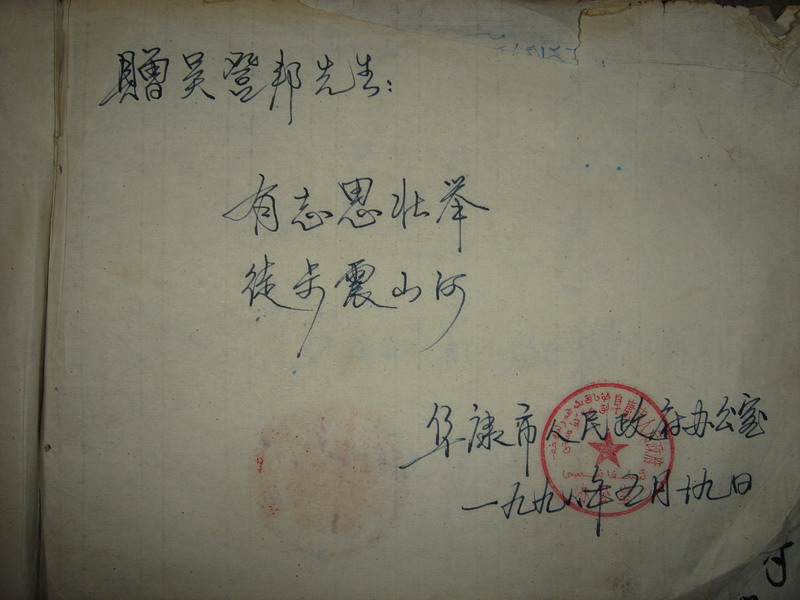 贈吴登邦先生:
有志思壮举
徒步震山河
阜康市人民政府办公室
一九九八年五月十九日